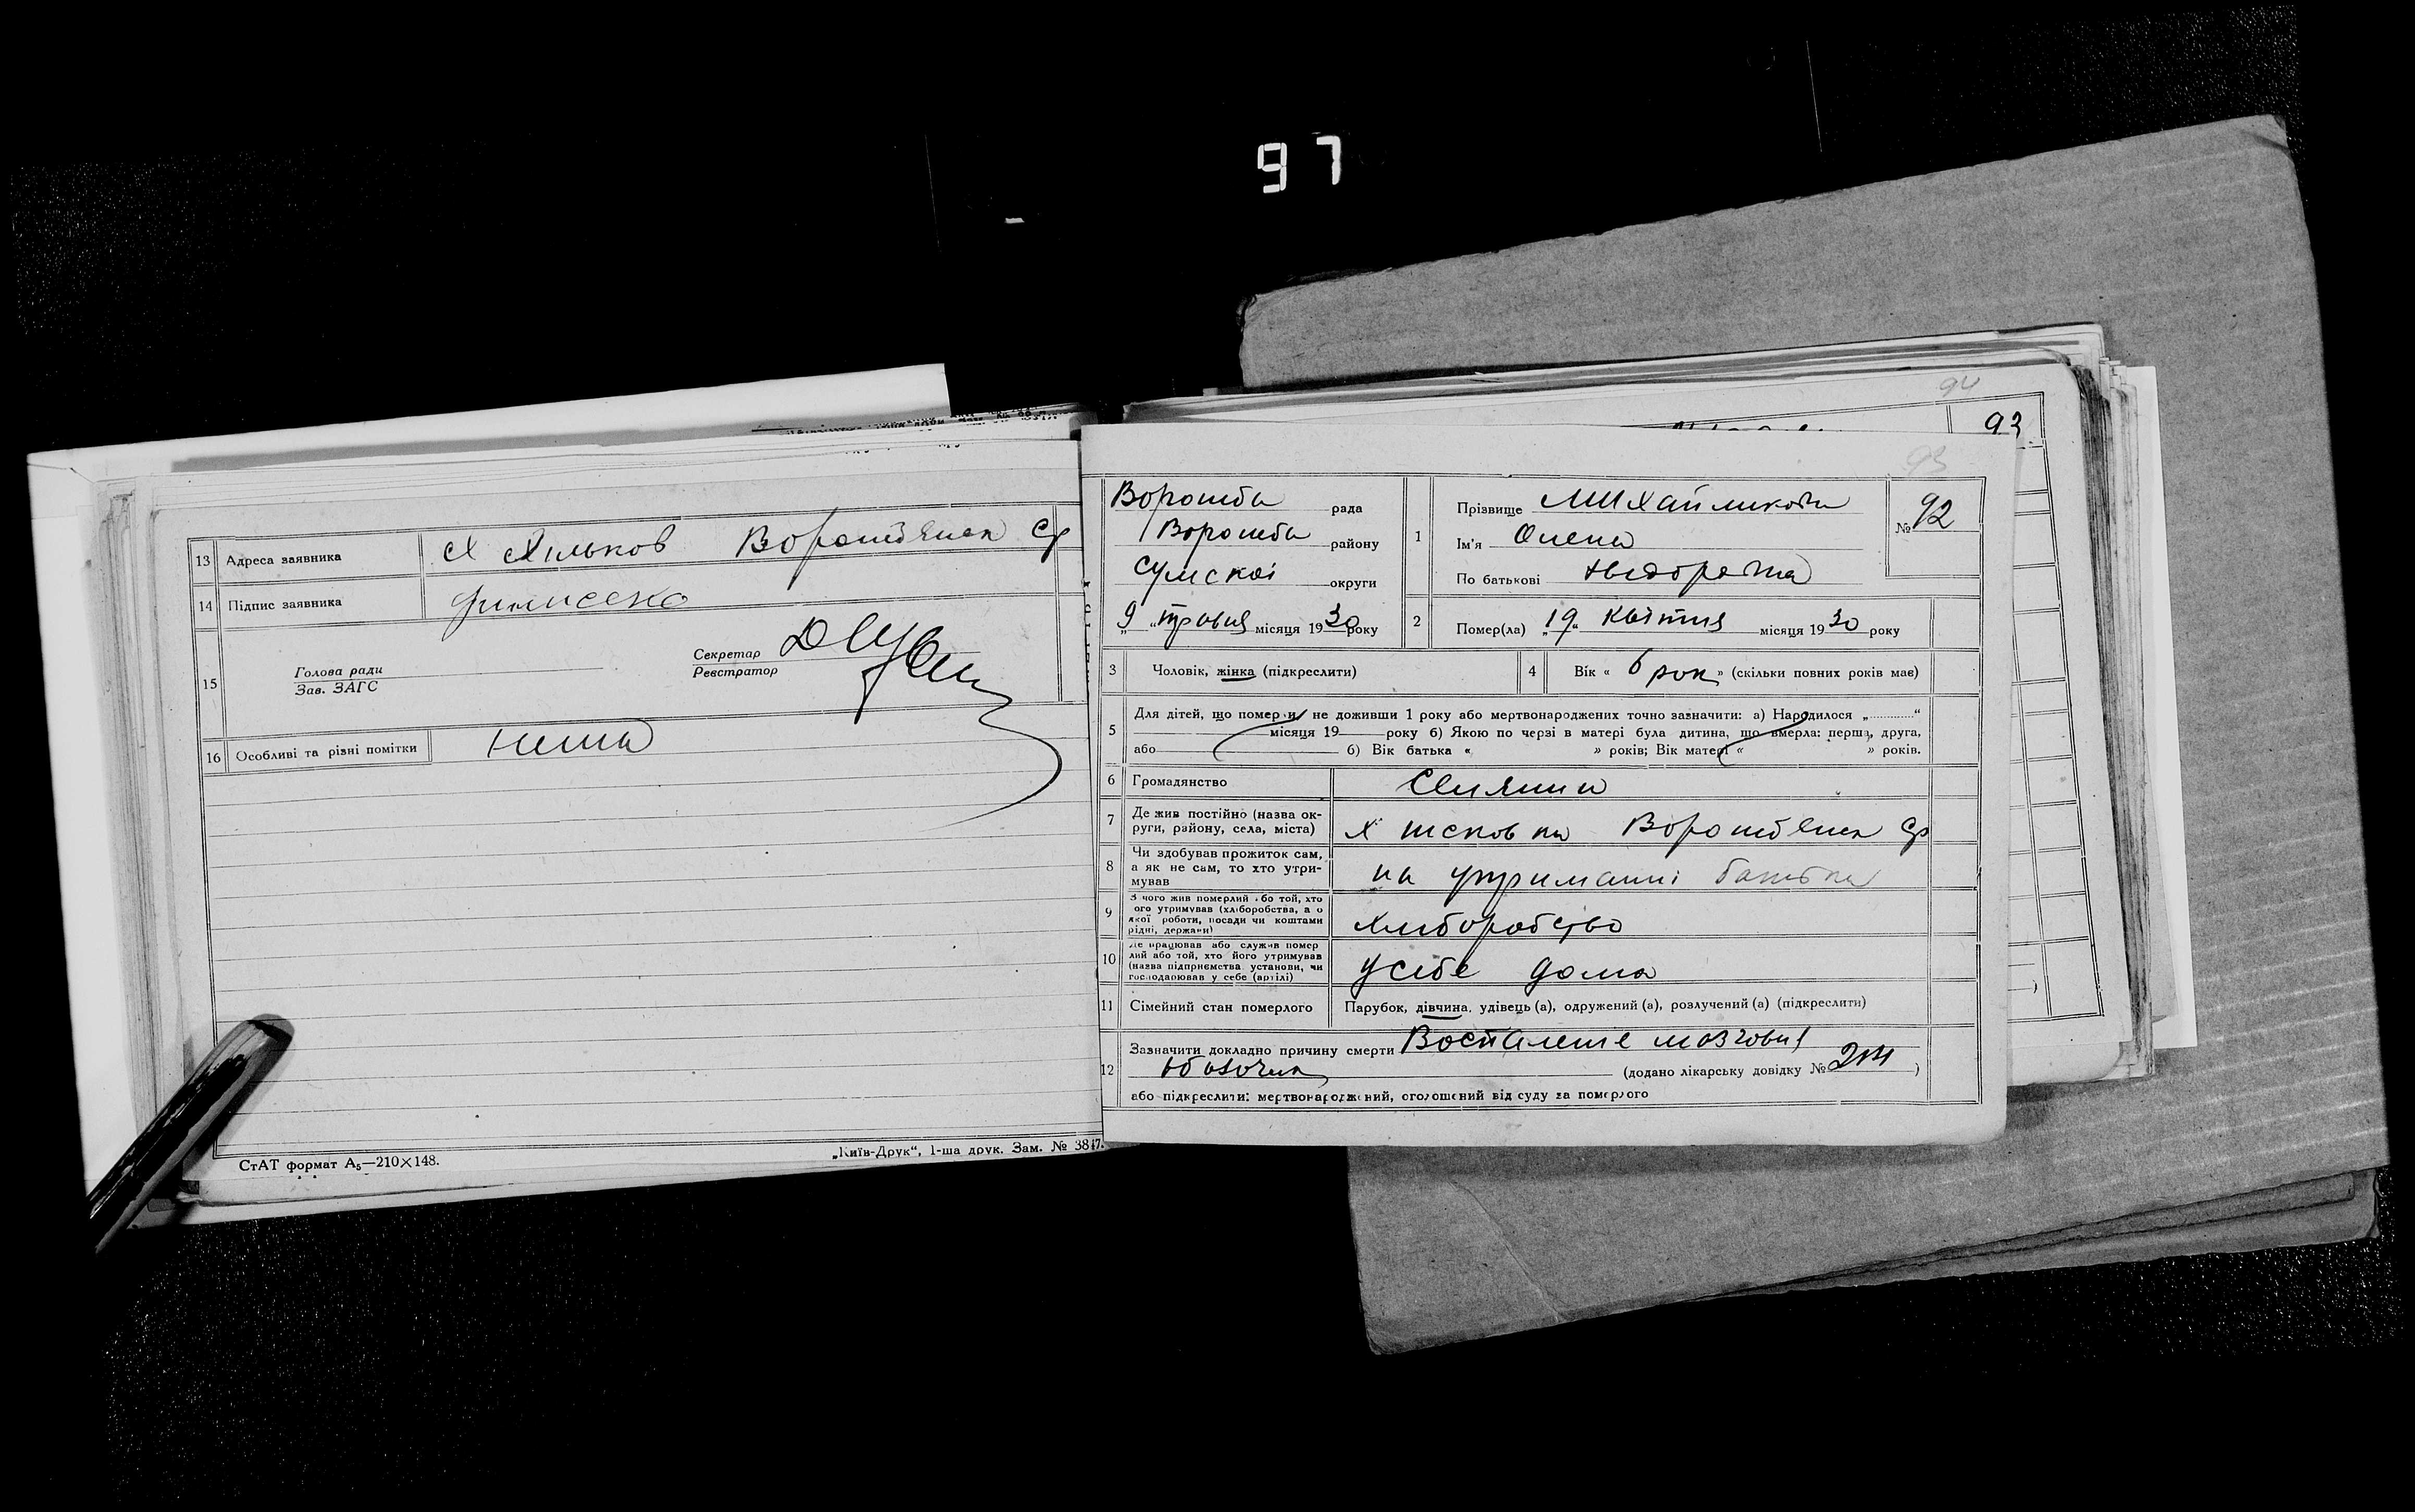 97
13 Адреса заявника х Хильков Ворожбянск Ср
14 Підпис заявника
15 Голова ради
Зав. ЗАГС
Секретар
Реєстратор
16 Особливі та різні помітки нима
СтАТ формат А₅—210×148.
„Київ-Друк“, 1-ша друк. Зам. № 3847.
94
93
93
Ворожба рада
Ворожба району
Сумскоі округи
„9“ травня місяця 1930 року
1 Прізвище Михайликова
Ім'я Олена
По батькові Хведоровна
№ 92
2 Помер(ла) „19“ квітня місяця 1930 року
3 Чоловік, жінка (підкреслити)
4 Вік « 6 рок » (скільки повних років має)
5 Для дітей, що померли, не доживши 1 року або мертвонароджених точно зазначити: а) Народилося „............“
місяця 19 року б) Якою по черзі в матері була дитина, що вмерла: перша, друга,
або б) Вік батька « » років; Вік матері « » років.
6 Громадянство Селянин
7 Де жив постійно (назва округи, району, села, міста) х Ворожбянск Ср
8 Чи здобував прожиток сам, а як не сам, то хто утримував на утриманні батька
9 З чого жив померлий або той, хто ого утримував (хліборобства, а о якої роботи, посади чи коштами рідні, держави) хлиборобство
10 Де працював або служив померлий або той, хто його утримував (назва підприємства установи, чи господарював у себе (артілі) у себе дома
11 Сімейний стан померлого Парубок, дівчина, удівець (а), одружений (а), розлучений (а) (підкреслити)
12 Зазначити докладно причину смерти Воспаление мозговых
оболочек (додано лікарську довідку № )
або підкреслити: мертвонароджений, оголошений від суду за померлого